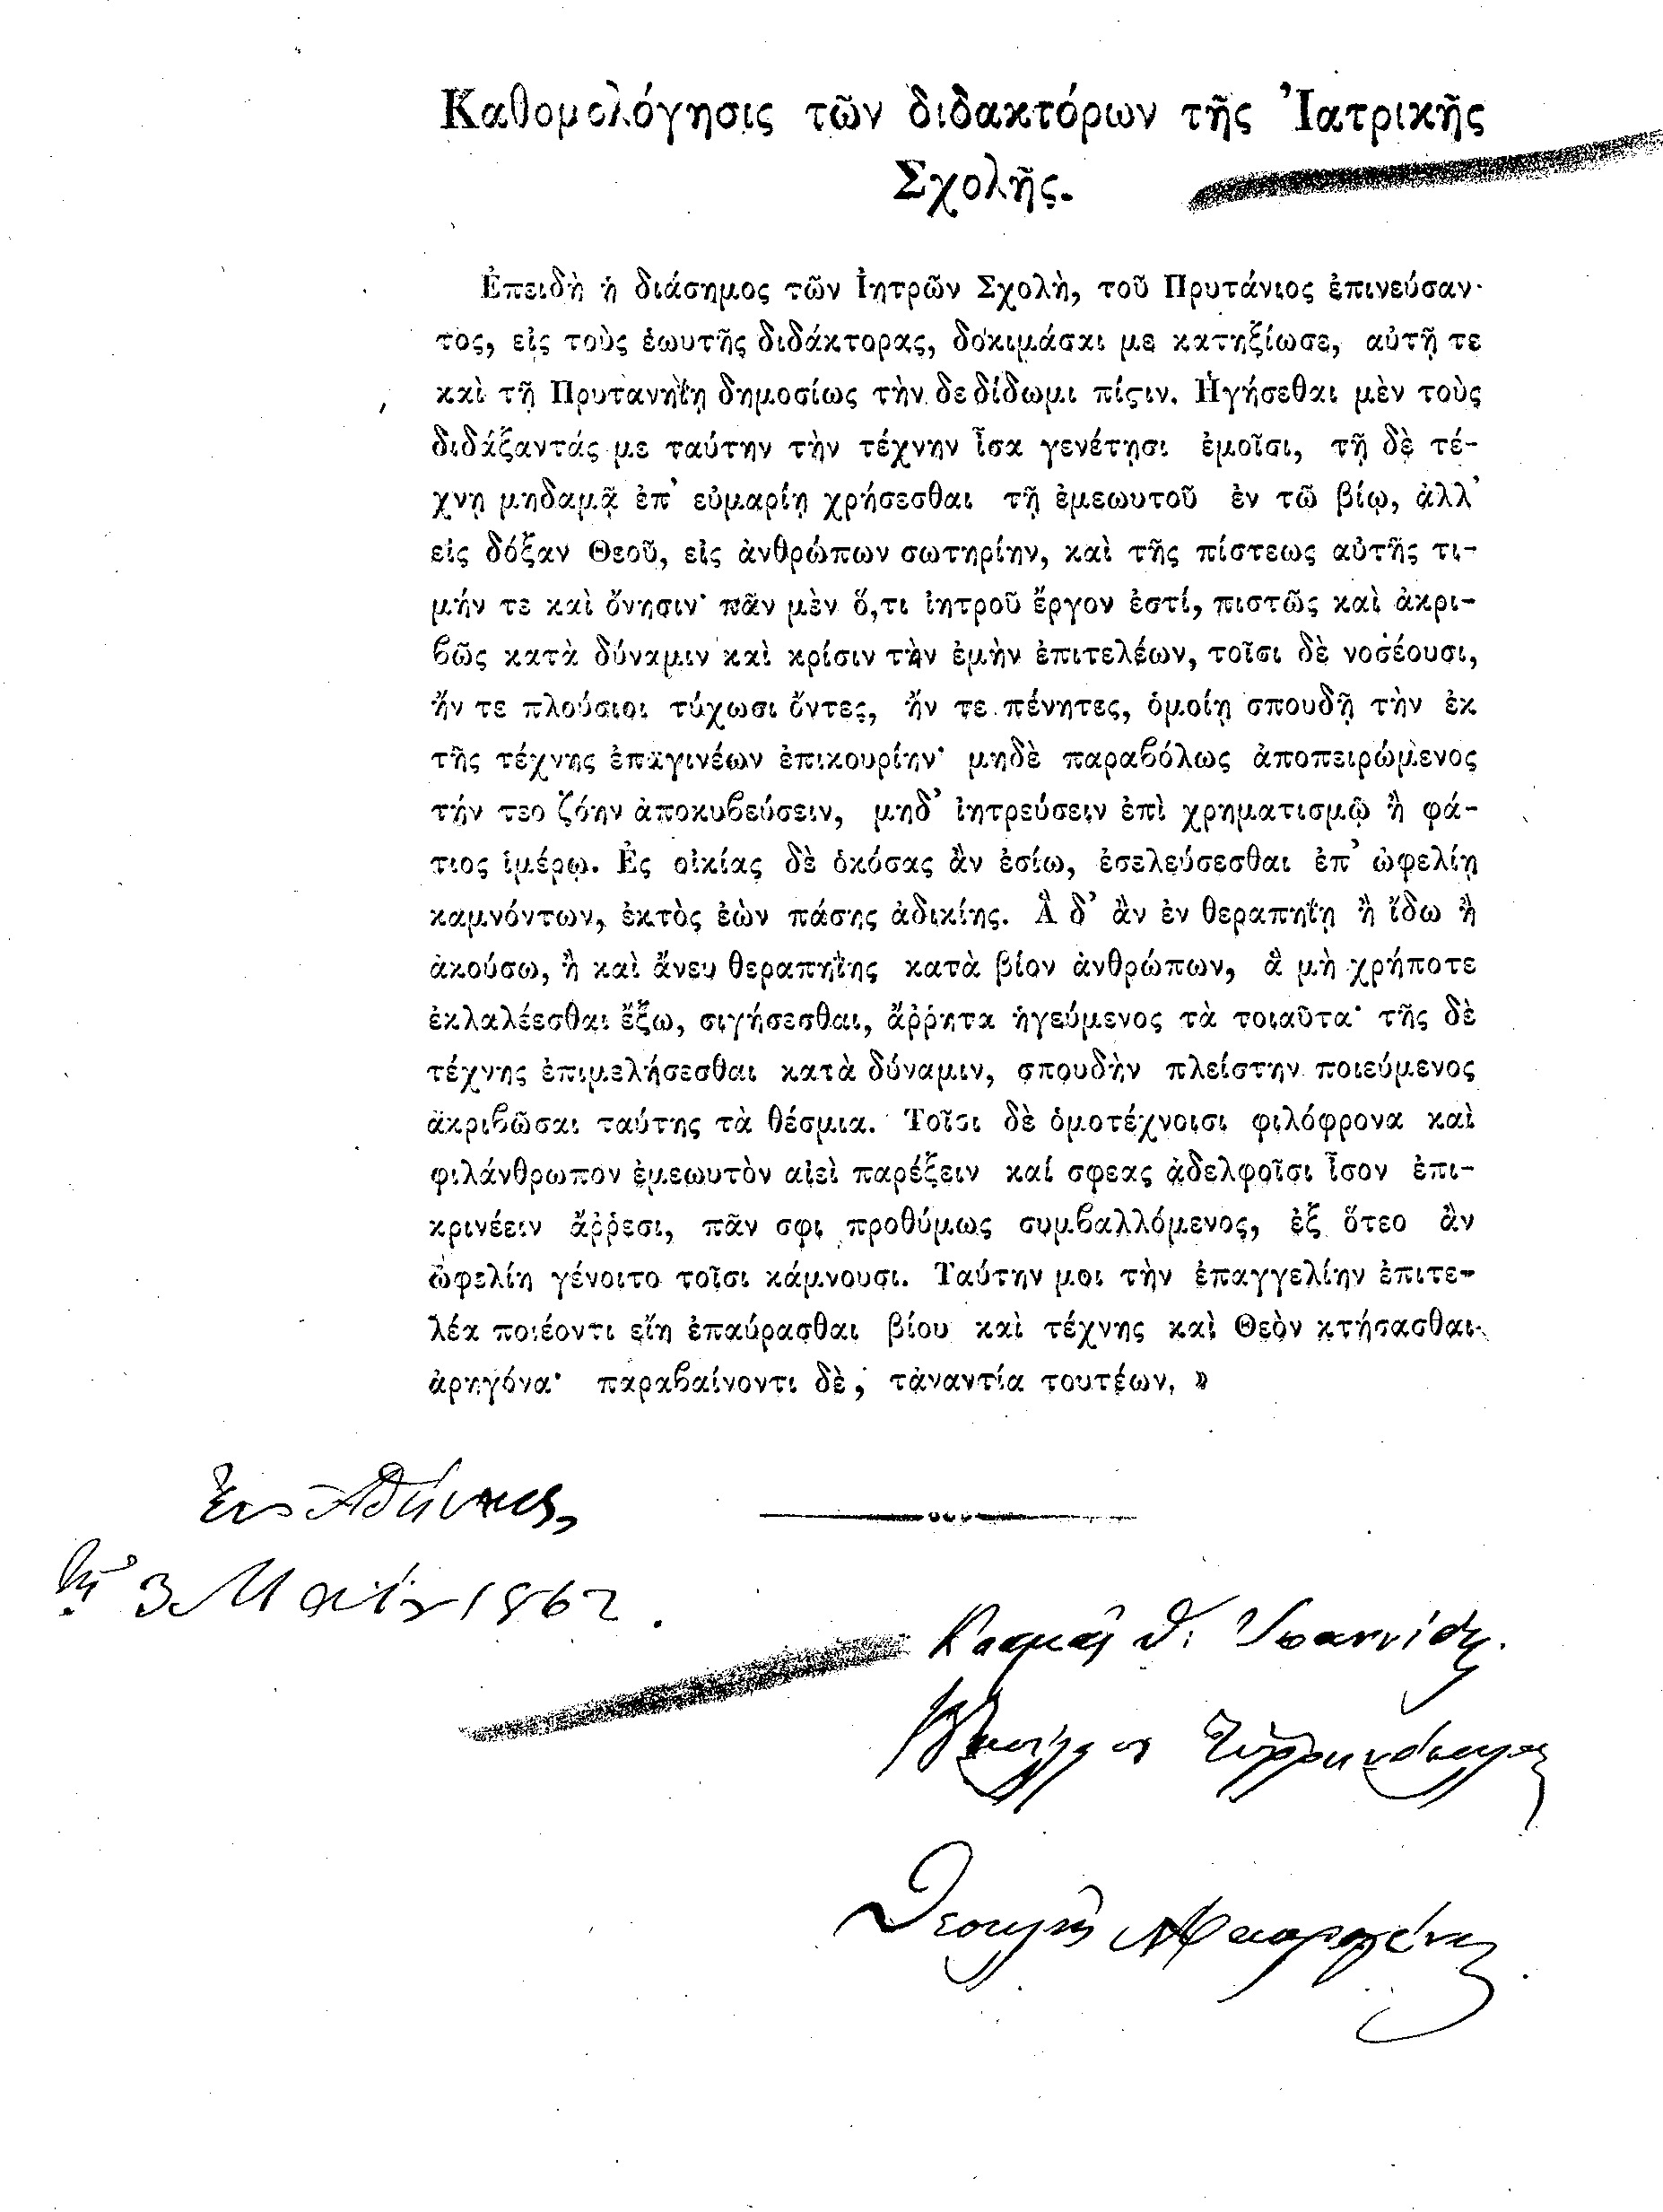 Καθομολόγησις τῶν διδακτόρων τῆς Ἰατρικῆς
Σχολῆς.
Ἐπειδὴ ἡ διάσημος τῶν Ἰητρῶν Σχολὴ, τοῦ Πρυτάνιος ἐπινεύσαν-
τος, εἰς τοὺς ἑωυτῆς διδάκτορας, δοκιμάσαι με κατηξίωσε, αὐτῇ τε
καὶ τῇ Πρυτανηΐῃ δημοσίως τὴν δε δίδωμι πίςιν. Ἡγήσεθαι μὲν τοὺς
διδάξαντάς με ταύτην τὴν τέχνην ἶσα γενέτῃσι ἐμοῖσι, τῇ δὲ τέ-
χνῃ μηδαμᾷ ἐπ’ εὐμαρίῃ χρήσεσθαι τῇ ἐμεωυτοῦ ἐν τῶ βίῳ, ἀλλ’
εἰς δόξαν Θεοῦ, εἰς ἀνθρώπων σωτηρίην, καὶ τῆς πίστεως αὐτῆς τι-
μήν τε καὶ ὄνησιν· πᾶν μὲν ὅ,τι ἰητροῦ ἔργον ἐστί, πιστῶς καὶ ἀκρι-
βῶς κατὰ δύναμιν καὶ κρίσιν τὴν ἐμὴν ἐπιτελέων, τοῖσι δὲ νοσέουσι,
ἤν τε πλούσιοι τύχωσι ὄντες, ἤν τε πένητες, ὁμοίῃ σπουδῇ τὴν ἐκ
τῆς τέχνης ἐπαγινέων ἐπικουρίην· μηδὲ παραβόλως ἀποπειρώμενος
τήν τεο ζόην ἀποκυβεύσειν, μηδ’ ἰητρεύσειν ἐπὶ χρηματισμῷ ἢ φά-
τιος ἱμέρῳ. Ἐς οἰκίας δὲ ὁκόσας ἂν ἐσίω, ἐσελεύσεσθαι ἐπ’ ὠφελίῃ
καμνόντων, ἐκτὸς ἐὼν πάσης ἀδικίης. Ἃ δ’ ἂν ἐν θεραπηΐῃ ἢ ἴδω ἢ
ἀκούσω, ἢ καὶ ἄνευ θεραπηΐης κατὰ βίον ἀνθρώπων, ἃ μὴ χρήποτε
ἐκλαλέεσθαι ἔξω, σιγήσεσθαι, ἄῤῥητα ἡγεύμενος τὰ τοιαῦτα· τῆς δὲ
τέχνης ἐπιμελήσεσθαι κατὰ δύναμιν, σπουδὴν πλείστην ποιεύμενος
ἀκριβῶσαι ταύτης τὰ θέσμια. Τοῖσι δὲ ὁμοτέχνοισι φιλόφρονα καὶ
φιλάνθρωπον ἐμεωυτὸν αἰεὶ παρέξειν καί σφεας ἀδελφοῖσι ἶσον ἐπι-
κρινέειν ἄῤῥεσι, πᾶν σφι προθύμως συμβαλλόμενος, ἐξ ὅτεο ἂν
ὠφελίη γένοιτο τοῖσι κάμνουσι. Ταύτην μοι τὴν ἐπαγγελίην ἐπιτε-
λέα ποιέοντι εἴη ἐπαύρασθαι βίου καὶ τέχνης καὶ Θεὸν κτήσασθαι
ἀρηγόνα· παραβαίνοντι δὲ, τἀναντία τουτέων. »
Ἐν Ἀθήναις,
τῇ 3 Μαΐου 1862.
Κοσμᾶς Θ. Ἰωαννίδης.
Θεοκλῆς